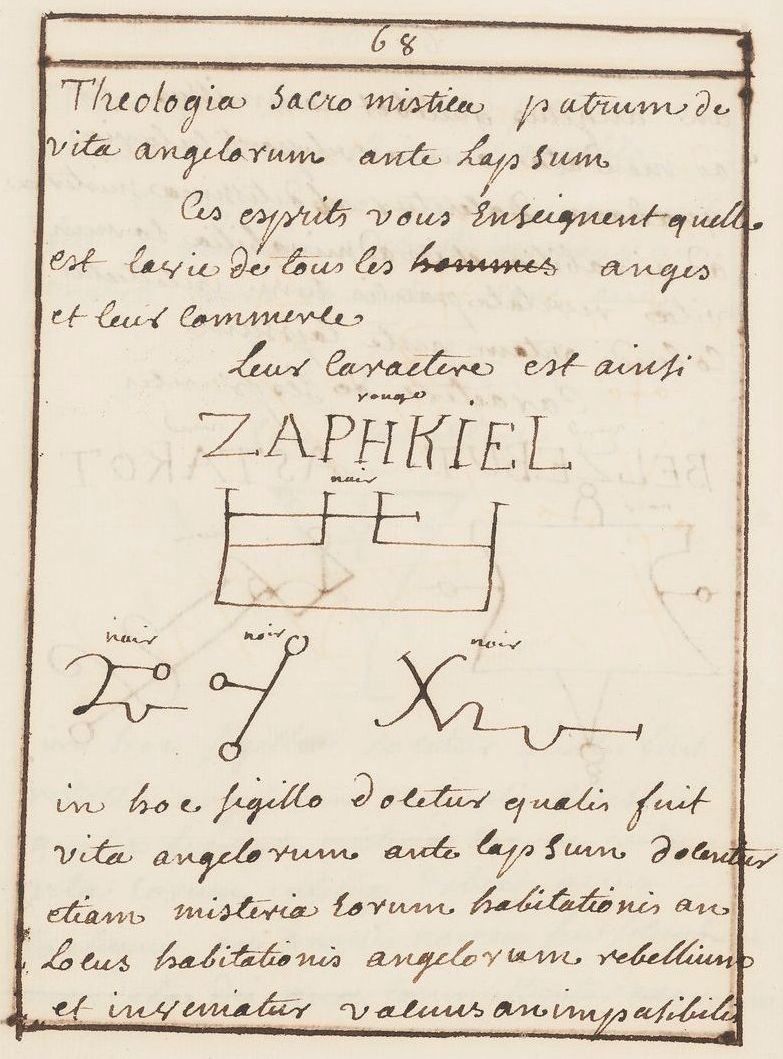 68
Theologia sacro mistica patrum de
vita angelorum ante lapsum
Ces esprits vous Enseignent quelle
est la vie de tous les hommes anges
et leur Commerce
Leur Caractere est ainsi
rouge
ZAPHKIEL
noir
noir noir noir
in hoc sigillo docetur qualis fuit
vita angelorum ante lapsum docentur
etiam misteria eorum habitationis an
Locus habitationis angelorum rebellium
et inveniatur vacuus an impasibilis